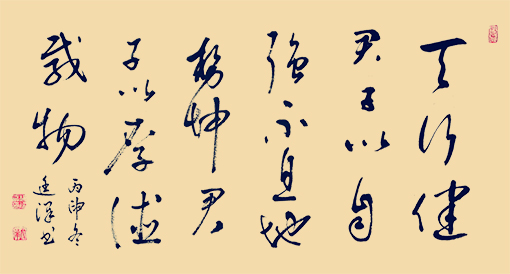 天行健
君子以自
强不息地
势坤君
子以厚德
载物
丙申冬
书